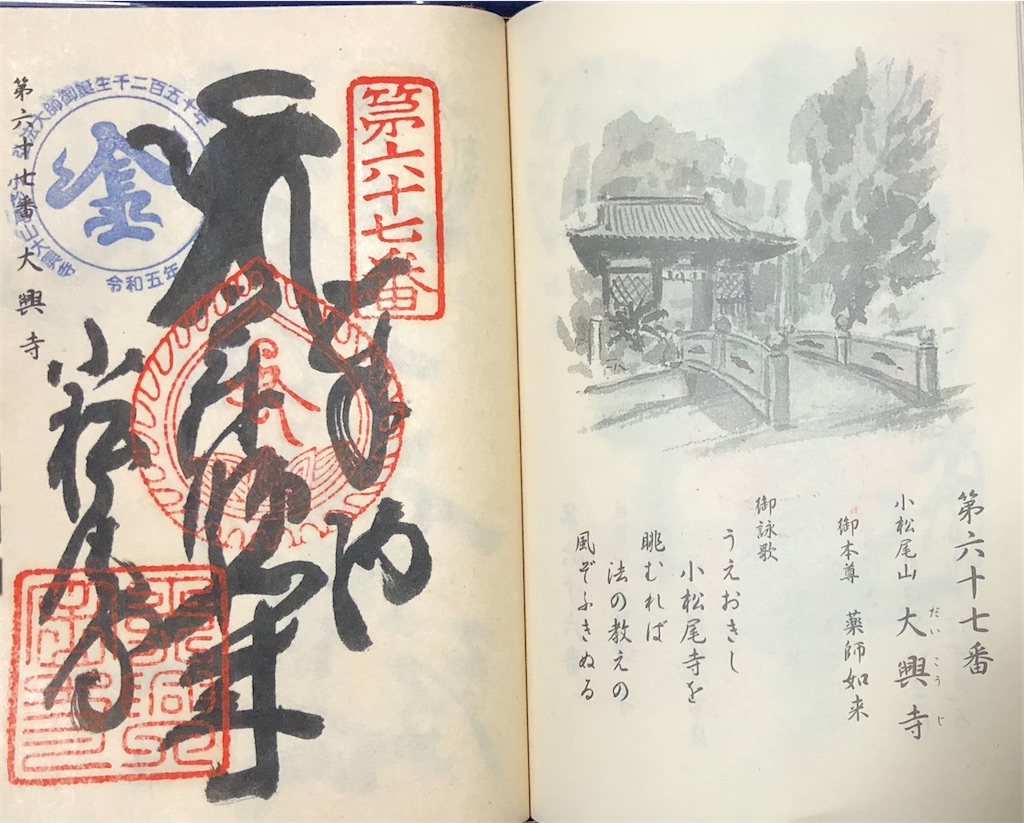 第六十七番
小松尾山 大興寺
だいこうじ
御本尊 薬師如来
御詠歌
うえおきし
小松尾寺を
眺むれば
法の教えの
風ぞふきぬる
第六十七番
奉納
小松尾寺
第六十七番大興寺
大師御誕生千二百五十年
金
大興寺
令和五年